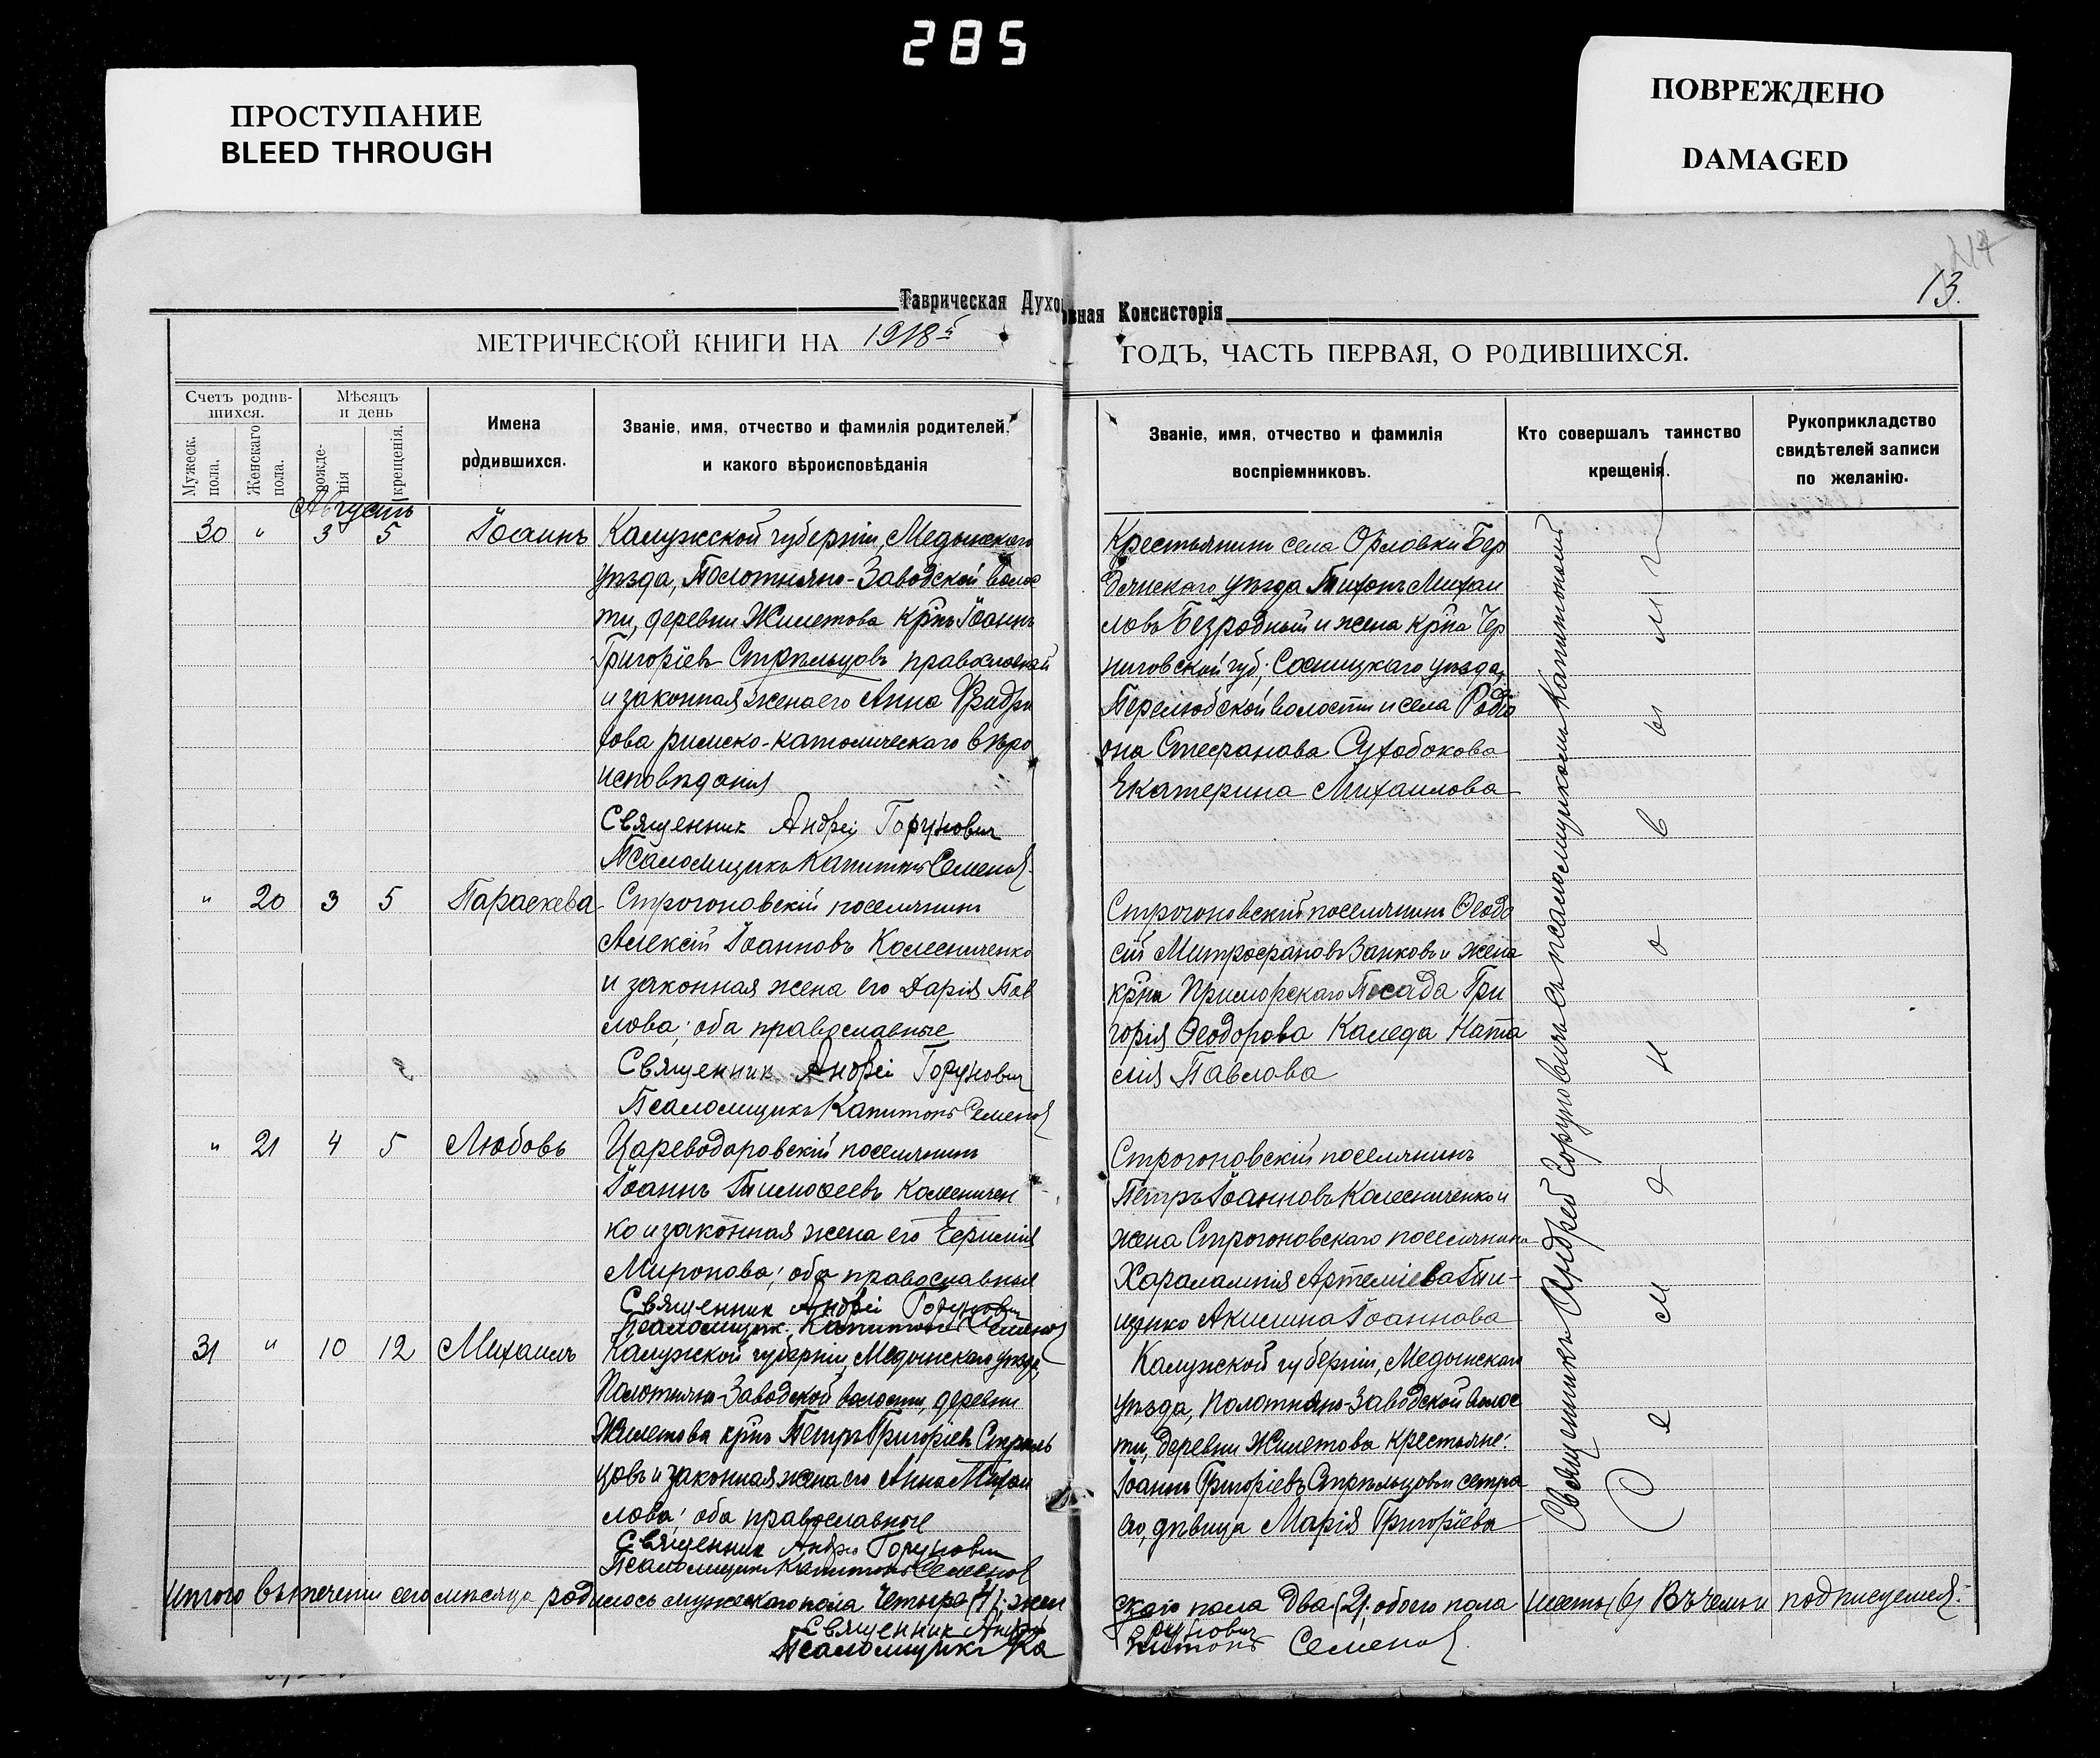 285
ПРОСТУПАНИЕ
BLEED THROUGH
ПОВРЕЖДЕНО
DAMAGED
217
13.
Таврическая Духовная Консисторія
МЕТРИЧЕСКОЙ КНИГИ НА 1918й ГОДЪ, ЧАСТЬ ПЕРВАЯ, О РОДИВШИХСЯ.
Счетъ родив-
шихся.
Мужеск.
пола.
Женскаго
пола.
Мѣсяцъ
и день
рожде-
нія
крещенія.
Имена
родившихся.
Званіе, имя, отчество и фамилія родителей,
и какого вѣроисповѣданія
Званіе, имя, отчество и фамилія
воспріемниковъ.
Кто совершалъ таинство
крещенія.
Рукоприкладство
свидѣтелей записи
по желанію.
Августъ
30 " 3 5 Іоаннъ
Калужской губерніи, Медынскаго
уѣзда, Полотняно-Заводской волос
ти, деревни Жилетова крнъ Іоаннъ
Григоріевъ Стрѣльцовъ православный
и законная жена его Анна
римско-католическаго вѣро
исповѣданія
Священник Андрей Горунович
Псаломщикъ Капитонъ Семенов
Крестьянин села Орловки Бер
дянскаго уѣзда Тихонъ Михаи
ловъ Безродный и жена крна Чер
ниговской губ; Сосницкаго уѣзда,
Перелюбской волости и села Родіо
она Стефанова Сухобокова
Екатерина Михаилова
" 20 3 5 Параскева
Строгоновскій поселянинъ
Алексій Іоанновъ Колесниченко
и законная жена его Дарія Пав
лова; оба православные
Священник Андрей Горунович
Псаломщикъ Капитонъ Семенов
Строгоновскій поселянинъ Ѳеодо
сій Митрофановъ Занковъ и жена
крна Приморскаго Посада Гри
горія Ѳеодорова Каледа Ната
лія Павлова
" 21 4 5 Любовь
Цареводаровскій поселянинъ
Іоаннъ Тимофеевъ Колесничен
ко и законная жена его Евфимія
Миронова; оба православныя
Священник Андрей Горунович
Псаломщик Капитонъ Семенов
Строгоновскій поселянинъ
Петръ Іоанновъ Колесниченко и
жена Строгоновскаго поселянина
Харалампія Артеміева
Акилина Іоаннова
31 " 10 12 Михаилъ
Калужской губерніи, Медынскаго уѣзда,
Полотняно-Заводской волости, деревни
Жилетова крнъ Петръ Григоріевъ Стрѣль
цовъ и законная жена его Анна Михаи
лова; оба православные
Священник Андрей Горунович
Псаломщикъ Капитонъ Семенов
Калужской губерніи, Медынскаго
уѣзда, Полотняно-Заводской волос
ти, деревни Жилетова крестьяне:
Іоаннъ Григоріевъ Стрѣльцовъ и сестра
его, дѣвица Марія Григоріева
Священникъ Андрей Горуновичъ съ псаломщикомъ Капитономъ
Семеновымъ
Итого въ теченіи сего мѣсяца родилось мужескаго пола четыре (4). жен
скаго пола два (2). обоего пола шесть (6) Въ чемъ и подписуемся:
Священник Андрей Горунович
Псаломщикъ Капитонъ Семенов